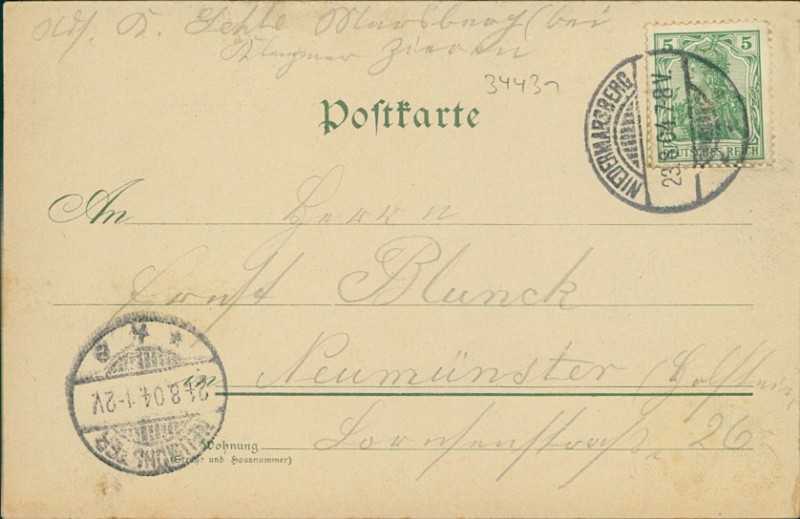 Abs. K. Gehle Marsberg (bei
3443
Postkarte
5 5
DEUTSCHES REICH
NIEDERMARSBERG
23.8.04.7-8V.
An Herrn
Ernst Blunck
in Neumünster (Holstein
Wohnung Lornsenstraße 26
(Straße und Hausnummer)
NEUMÜNSTER
24.8.04.1-2V.